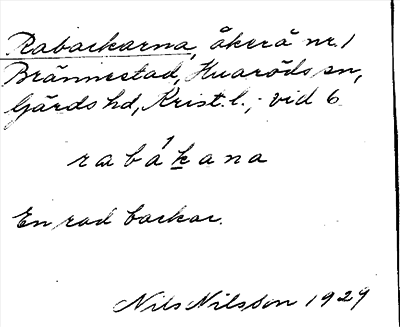 Rabackarna, åkerå nr. 1
Brännestad, Huaröds sn,
Gärds hd, Krist. l.; vid 6
rabákana
En rad backar.
Nils Nilsson 1929